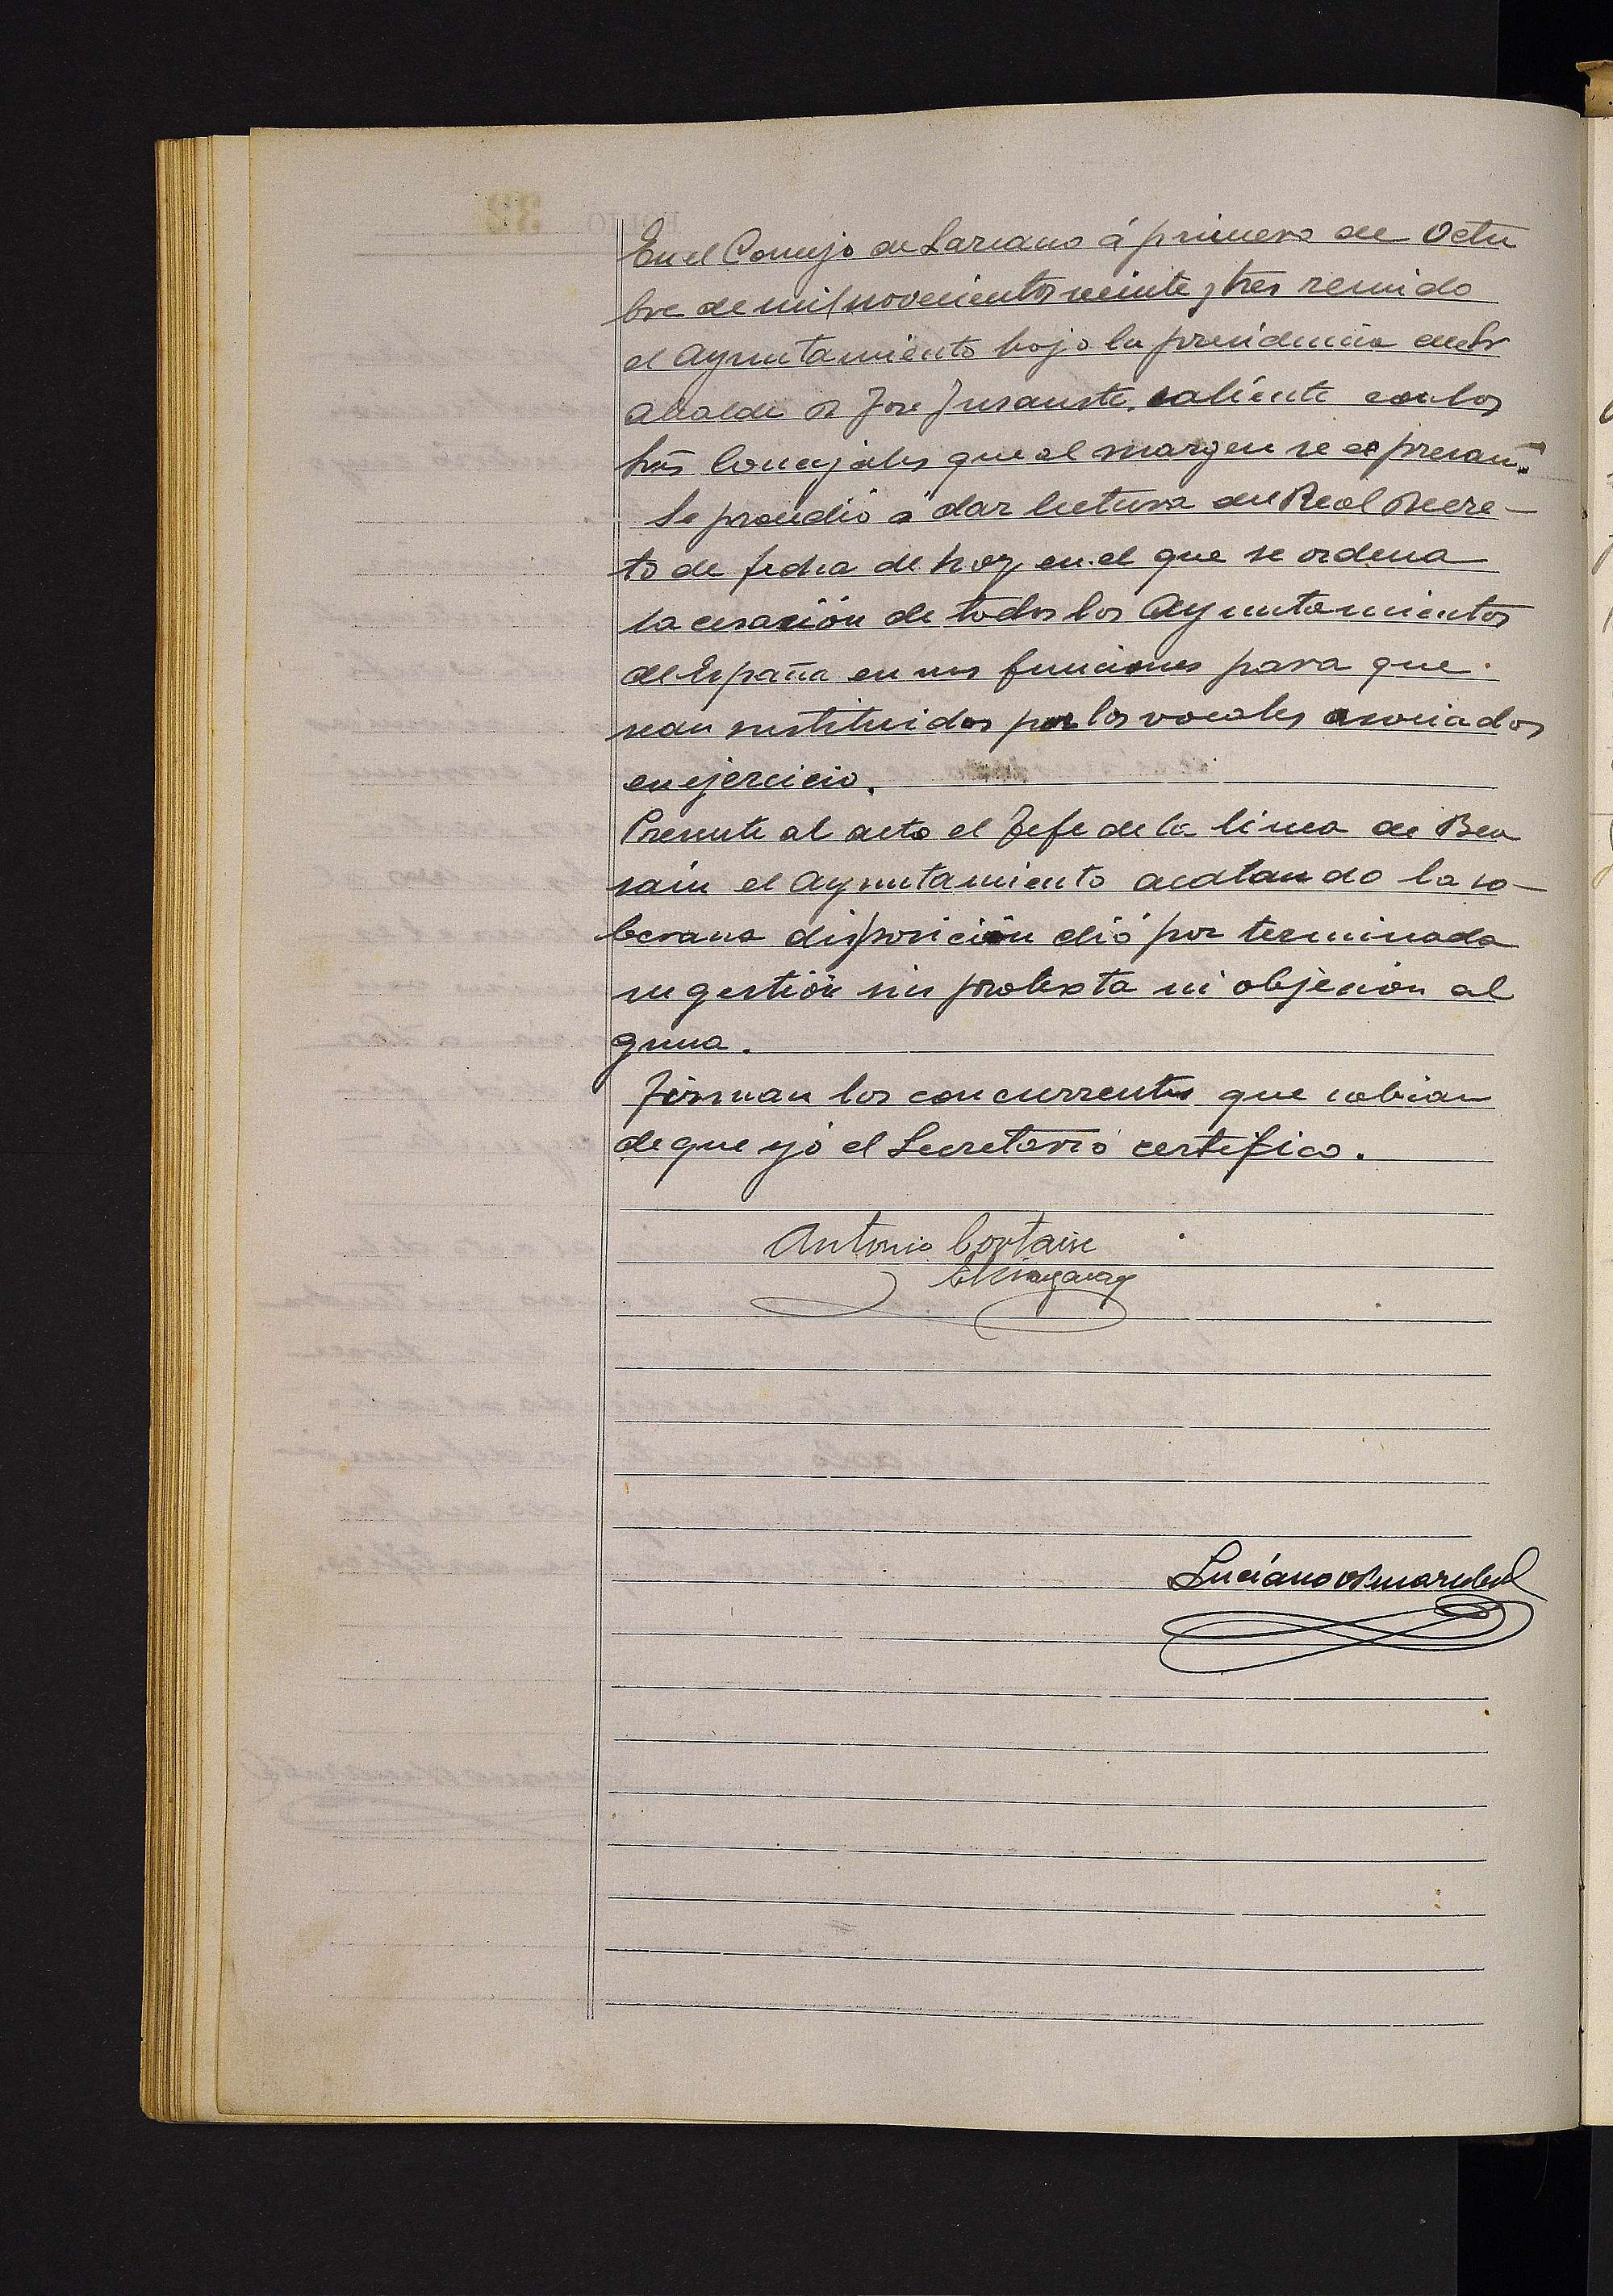 En el Concejo de Lazcano á primero de Octu
bre de mil novecientos veinte y tres reunido
el Ayuntamiento bajo la presidencia del Sr
Alcalde D José Insausti saliente con los
Srs Concejales que al margen se expresan.
Se procedió á dar lectura del Real Decre-
to de fecha de hoy en el que se ordena
la cesación de todos los Ayuntamientos
de España en sus funciones para que
sean sustituidos por los vocales asociados
en ejercicio.
Presente al acto el Jefe de la linea de Bea
sain el Ayuntamiento acatando la so-
berana disposición dió por terminada
su gestión sin protesta ni objeción al
guna.
Firman los concurrentes que sabian
de que yó el Secretario certifico.
Antonio
Luciano